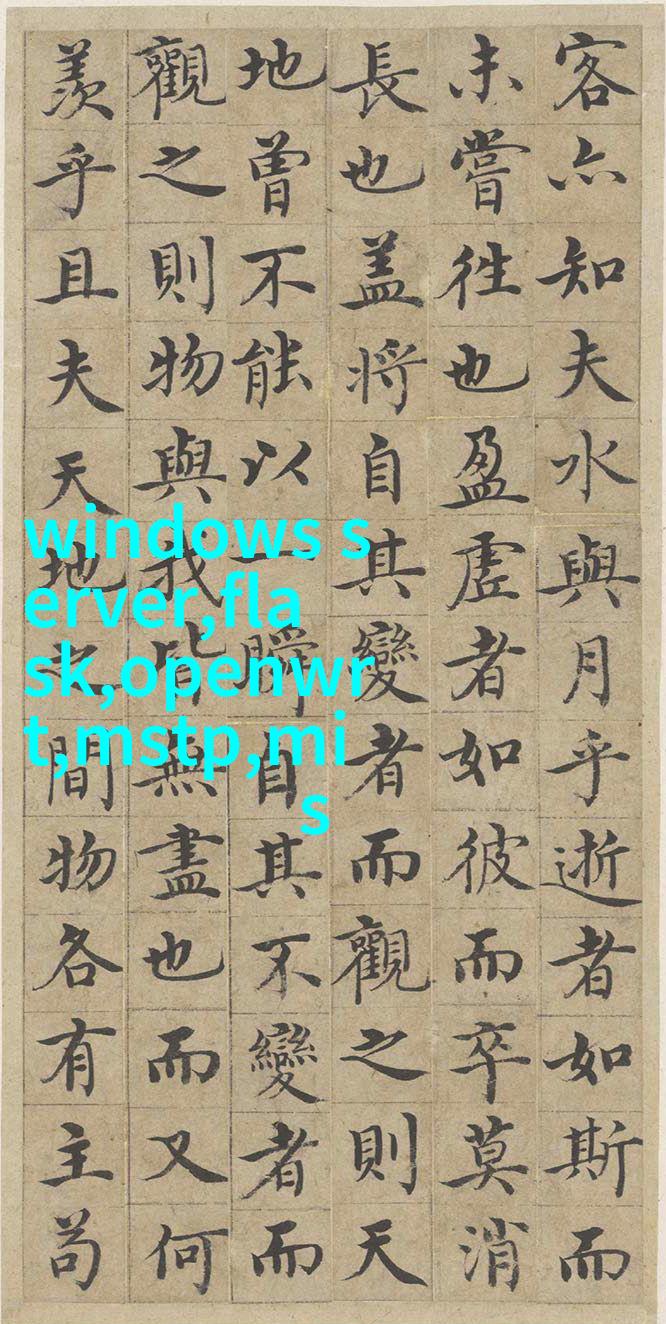 客亦知夫水與月乎逝者如斯而
未嘗往也盈虛者如彼而卒莫消
長也盖將自其變者而觀之則天
地曾不能以一瞬自其不變者而
觀之則物與我皆無盡也而又何
羨乎且夫天地之間物各有主苟
windows s
erver,fla
sk,openwr
t,mstp,mi
s